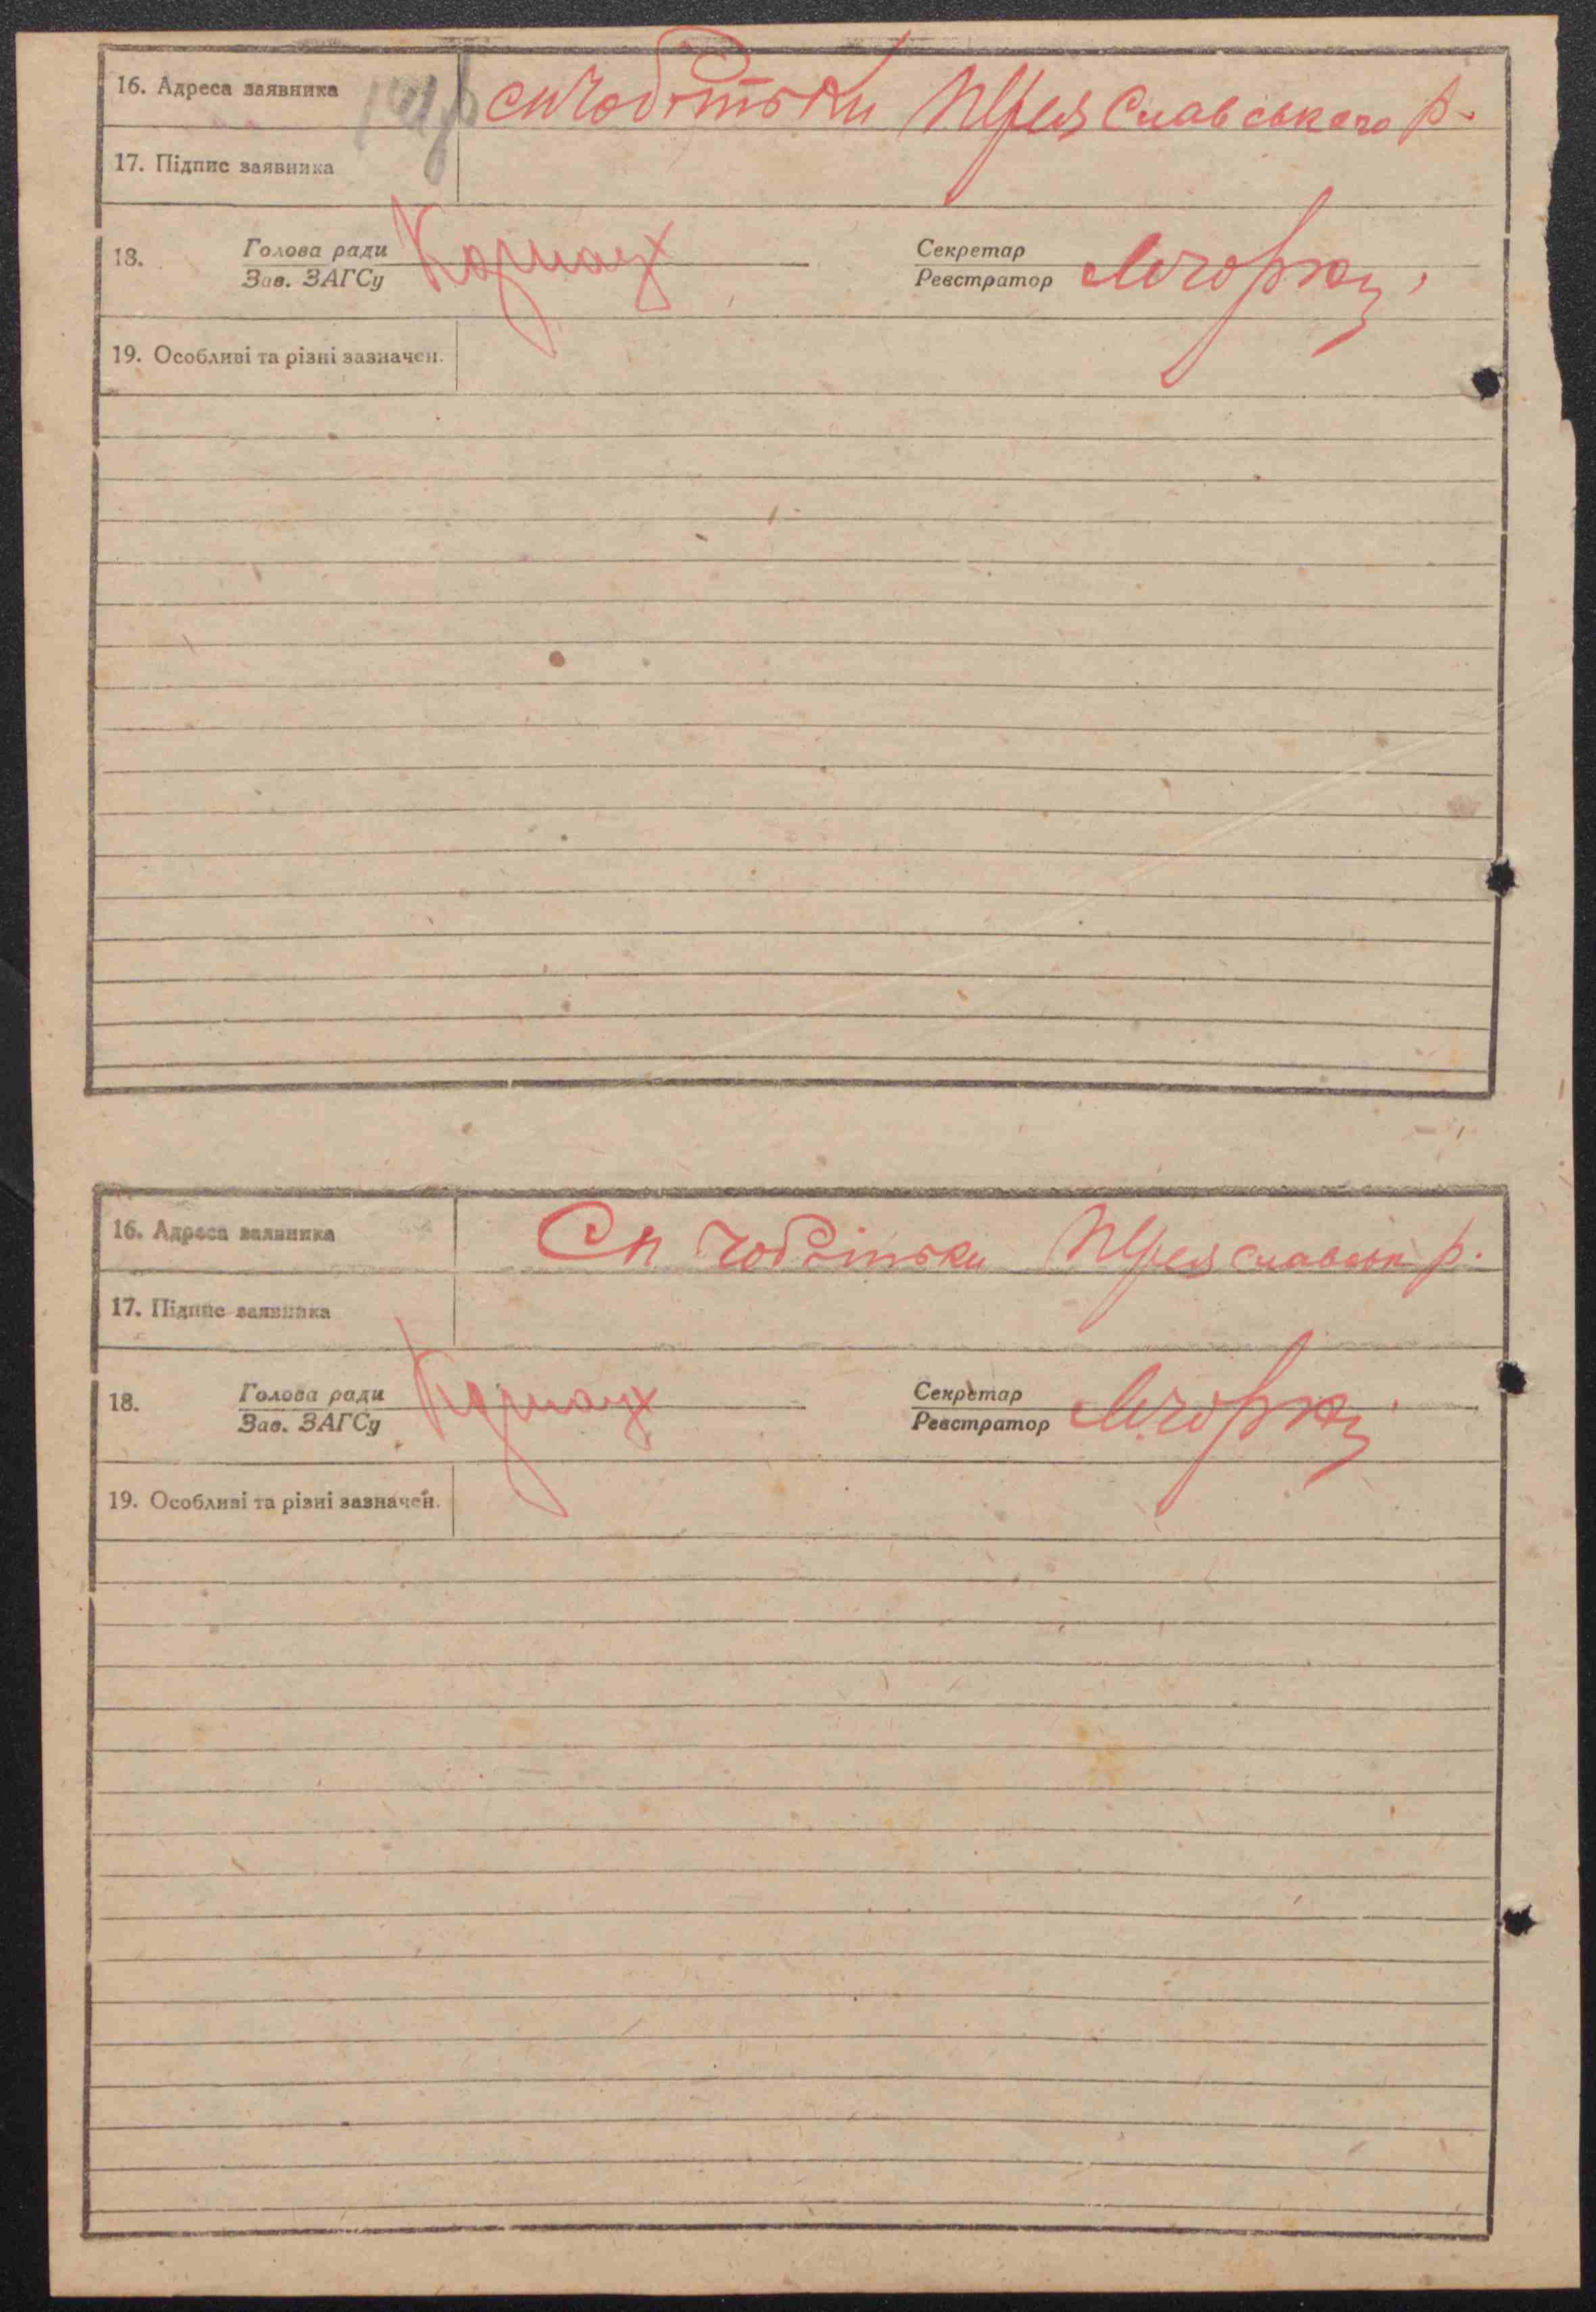 16. Адреса заявника с Чобітьки Переяславського р.
17. Підпис заявника
18. Голова ради Секретар
Зав. ЗАГСу Реєстратор
19. Особливі та різні зазначен.
16. Адреса заявника Чобітьки Переяславськ р.
17. Підпис заявника
18. Голова ради Секретар
Зав. ЗАГСу Реєстратор
19. Особливі та різні зазначен.